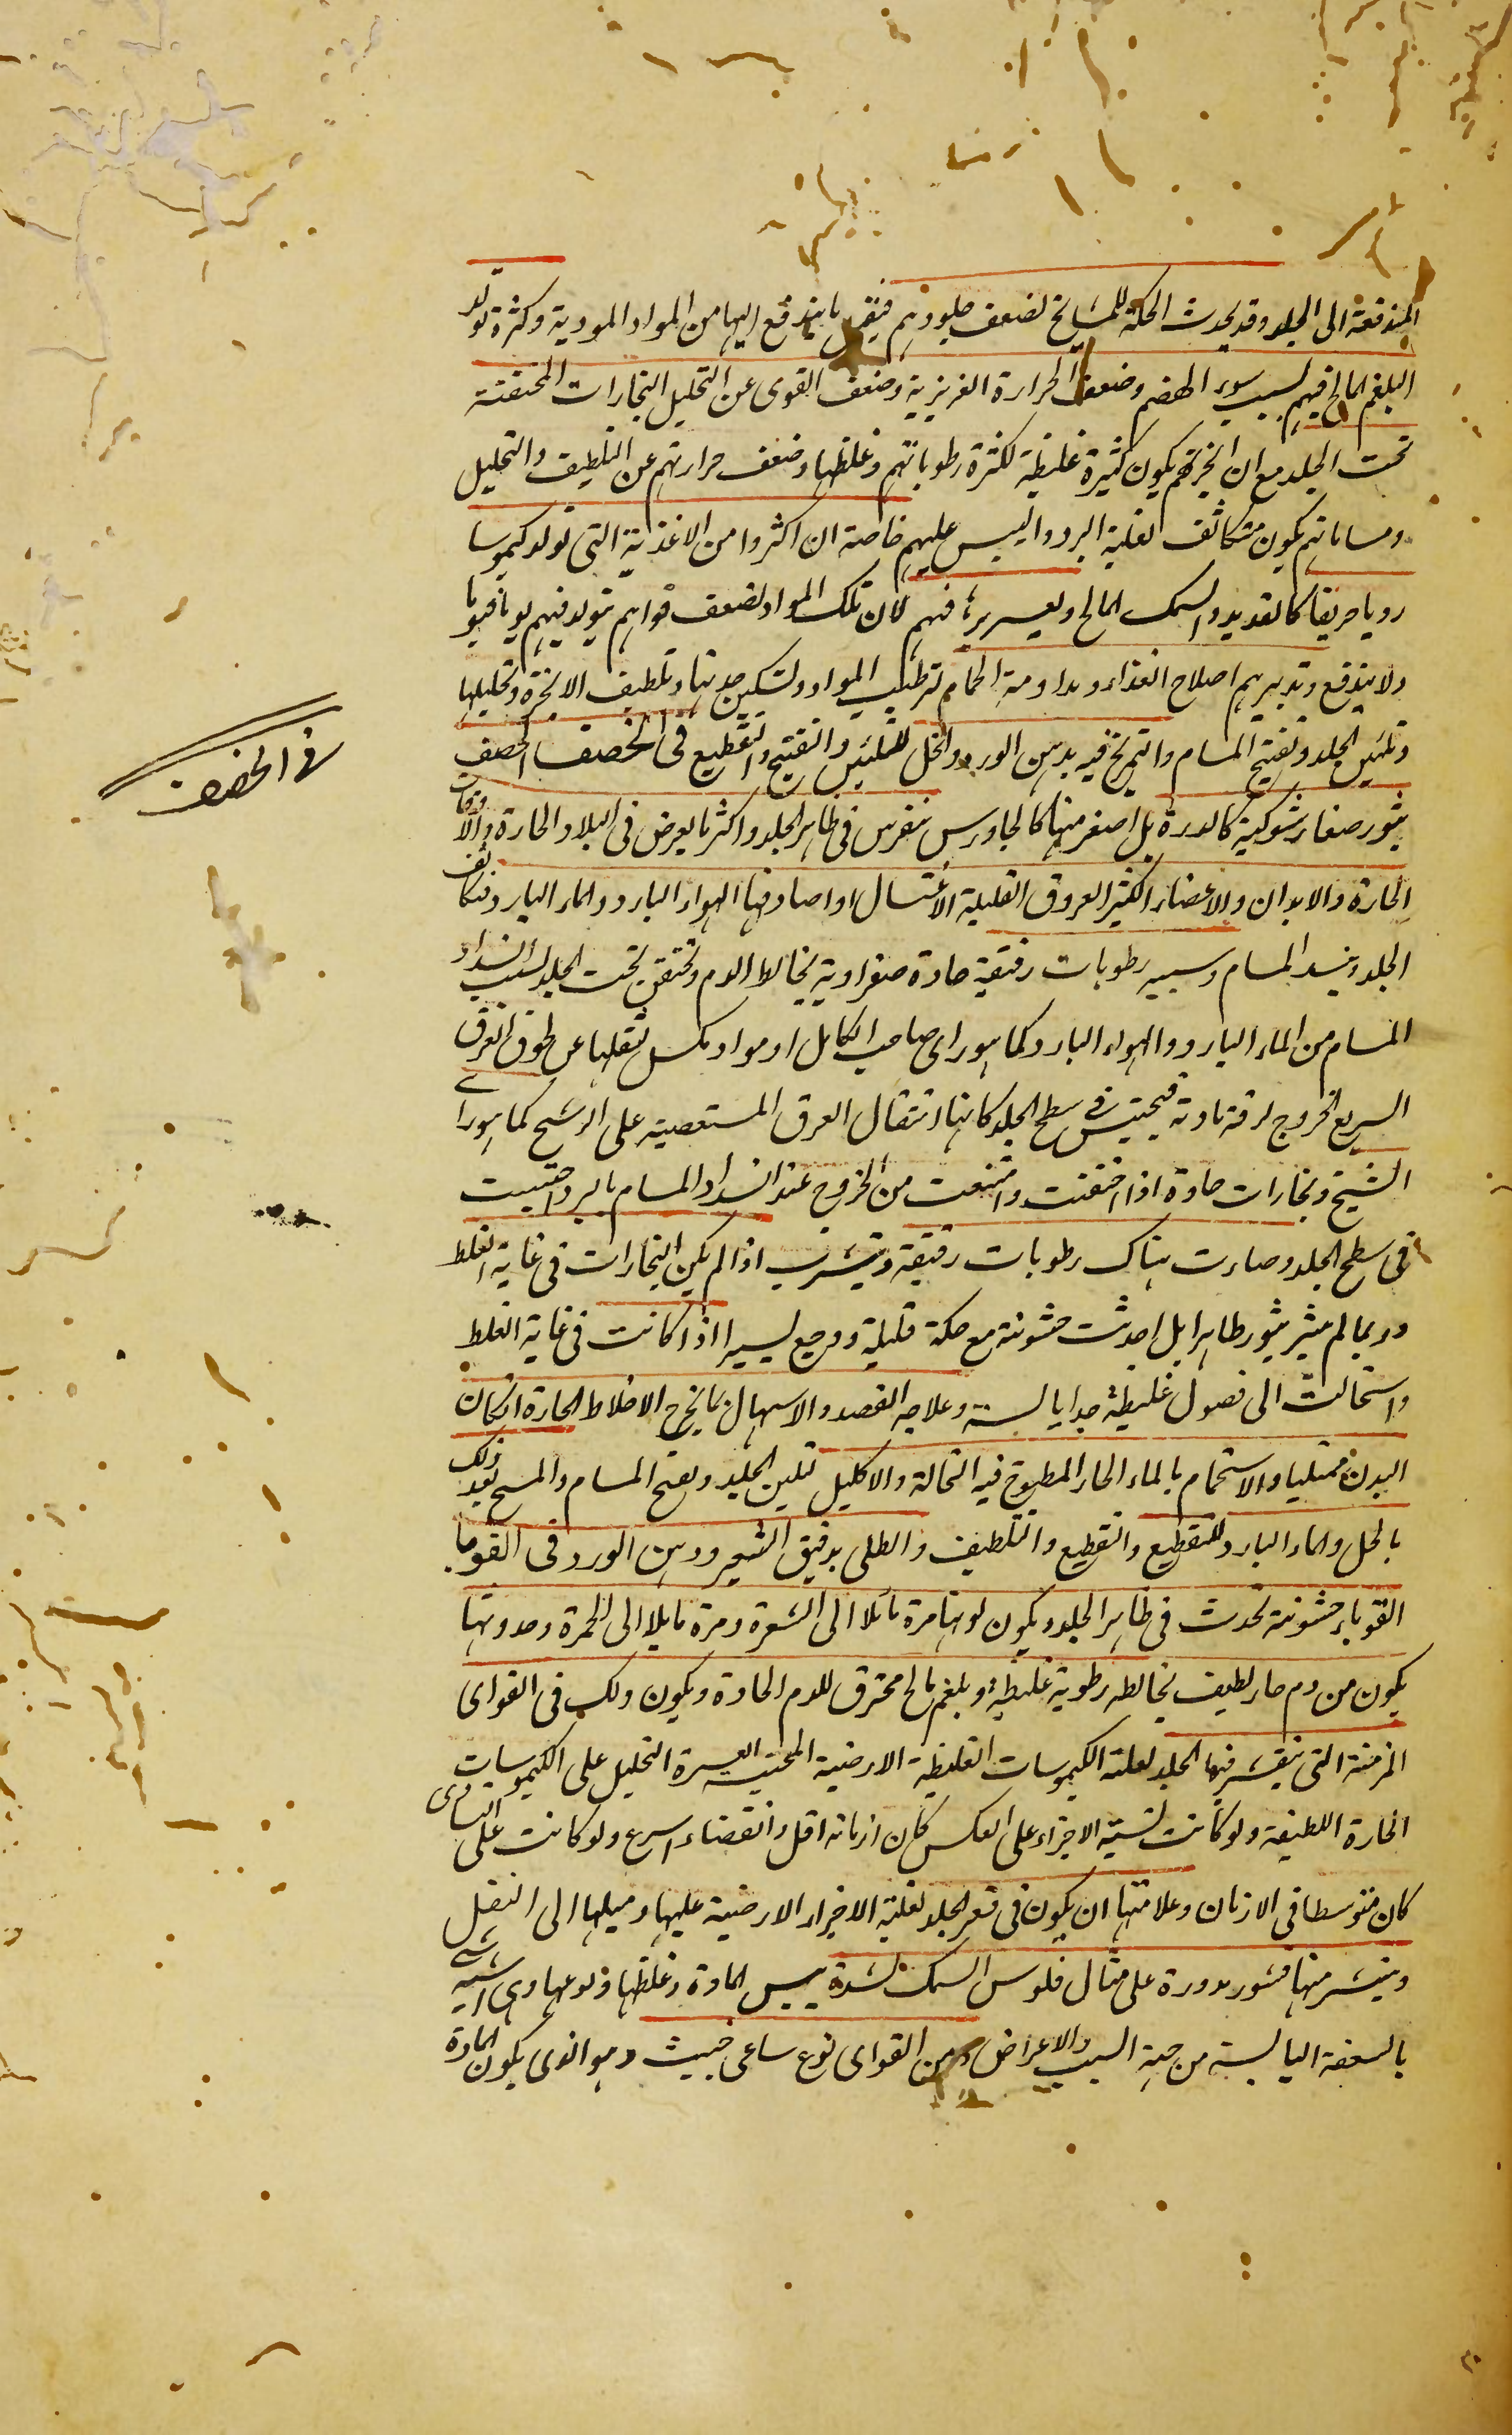 المندفعة الى الجلد وقد يحدث الحكة للمشايخ لضعف جلودهم فيقبل ما يندفع اليها من المواد الموذية وكثرة تولد
البلغم المالح فيهم بسبب سوء الهضم وضعف الحرارة الغريزية وضعف القوى عن التحليل البخارات المحتقنة
تحت الجلد مع ان ابخرتهم يكون كثيرة غليظة لكثرة رطوباتهم وغلظها وضعف حرارتهم عن التلطيف والتحليل
ومساماتهم يكون متكاثف لغلبة البرد واليبس عليهم خاصة ان اكثروا من الاغذية التى تولد كيموسا
رديا حريفا كالقديد والسمك المالح ويعسر برء فيهم لان تلك المواد لضعف قواهم يتولد فيهم يوما فيوما
ولا يندفع وتدبيرهم اصلاح الغذاء ومداومة الحمام لترطيب المواد وتسكين حدتها وتلطيف الابخرة وتحليلها
وتليين الجلد وتفتيح المسام والتمريخ فيه بدهن الورد والخل للتليين والتفتيح والتقطيع فى الحصف الحصف
بثور صغار شوكية كالذرة بل اصغر منها كالجاورس تنفرش فى ظاهر الجلد واكثر ما يعرض فى البلاد الحارة والاوقات
الحارة والابدان والاعضاء الكثير العروق القليلة الاغتسال اواصادفها الهواء البارد والماء البارد فتكاثف
الجلد وينسد المسام وسببه رطوبات رقيقة حادة صفراوية يخالط الدم وتحتقن تحت الجلد بسبب انسداد
المسام من الماء البارد والهواء البارد كما هو راى صاحب الكامل او مواد يكسل ثقلها عن لحوق العرق
السريع الخروج لرقة مادته فيحتبس فى سطح الجلد كانها ثفال العرق المستعصية على الرشح كما هو راے
الشيخ وبخارات حادة اذا احتقنت وامتنعت من الخروج عند انسداد المسام بالبرد احتبست
فى سطح الجلد وصارت هناك رطوبات رقيقة وتبثرت اذا لم يكن البخارات فى غاية الغلظ
وربما لم يبثر بثور ظاهرا بل احدثت خشونة مع حكة قليلة ووجع يسيرا اذا كانت فى غاية الغلظ
واستحالت الى فضول غليظة جدا يابسة وعلاجه الفصد والاسهال بما يخرج الاخلاط الحارة ان كان
البدن ممتليا والاستحمام بالماء الحار المطبوخ فيه النخالة والاكليل لتلين الجلد ويفتح المسام والمسح بعد ذلك
بالخل والماء البارد للتقطيع والتقطيع والتلطيف والطلى بدقيق الشعير ودهن الورد فى القوبا
القوباء خشونة تحدث فى ظاهر الجلد ويكون لونها مرة مائلا الى الشقرة ومرة مايلا الى الحمرة وحدوثها
يكون من دم حار لطيف يخالطه رطوبة غليظة وبلغم مالح محترق للدم الحادة ويكون ذلك فى القوابى
المزمنة التى يتقشر فيها الجلد لغلبة الكيموسات الغليظة الارضية المحتبسة العسرة التحليل على الكيموسات
الحارة اللطيفة ولو كانت نسبة الاجزاء على العكس كان ازمانه اقل وانقضاء اسرع ولو كانت على التساوى
كان متوسطا فى الازمان وعلامتها ان يكون فى قعر الجلد لغلبة الاجزاء الارضية عليها وميلها الى الثقل
وينتشر منها قشور مدورة على مثال فلوس السمك لشدة يبس المادة وغلظها ولزوعها وهى اشبه شے
بالسعفة اليابسة من جهة السبب والاعراض ومن القوابى نوع ساعى خبيث وهو الذى يكون المادة
فى الحصف